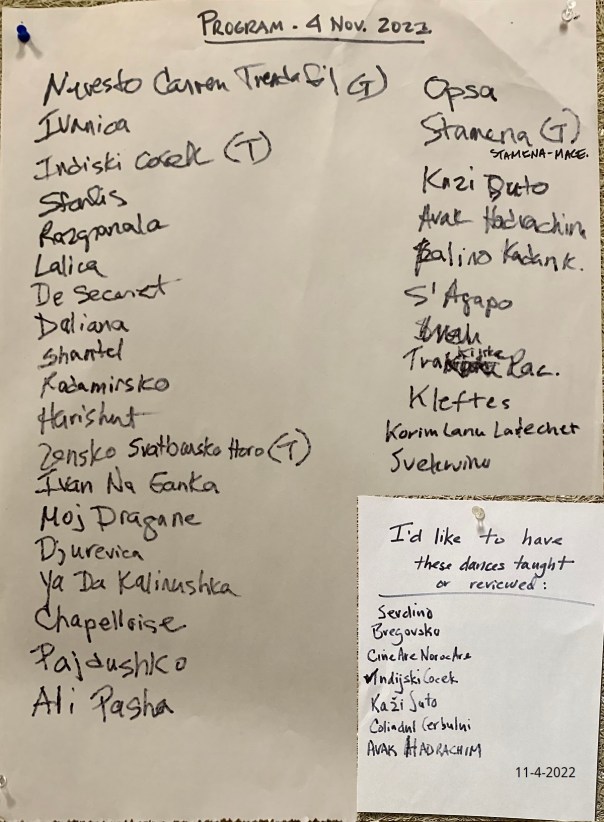 PROGRAM. 4 NOV. 2022.
Nevesto Carven Trendafil (T)
Ivanica
Indiski Cocek (T)
Sfarlis
Razgranala
Lalica
De Secarat
Daliana
Shantel
Kadamirsko
Harishut
Zensko Svatbarsko Horo (T)
Ivan Na Ganka
Moj Dragane
Djurevica
Ya Da Kalinushka
Chapelloise
Pajdushko
Ali Pasha
Opsa
Stamena (T)
STAMENA-MACE.
Kazi Suto
Avak Hadrachim
Balino Kadank.
S'Agapo
Trakijska Rac.
Kleftes
Korim Lanu Latechet
Svekrvino
I'd like to have
these dances taught
or reviewed:
Serdino
Bregovsko
Cine Are Noroc Are
✓Indijski Cocek
Kaži Suto
Colindul Cerbului
AVAK HADRACHIM
11-4-2022